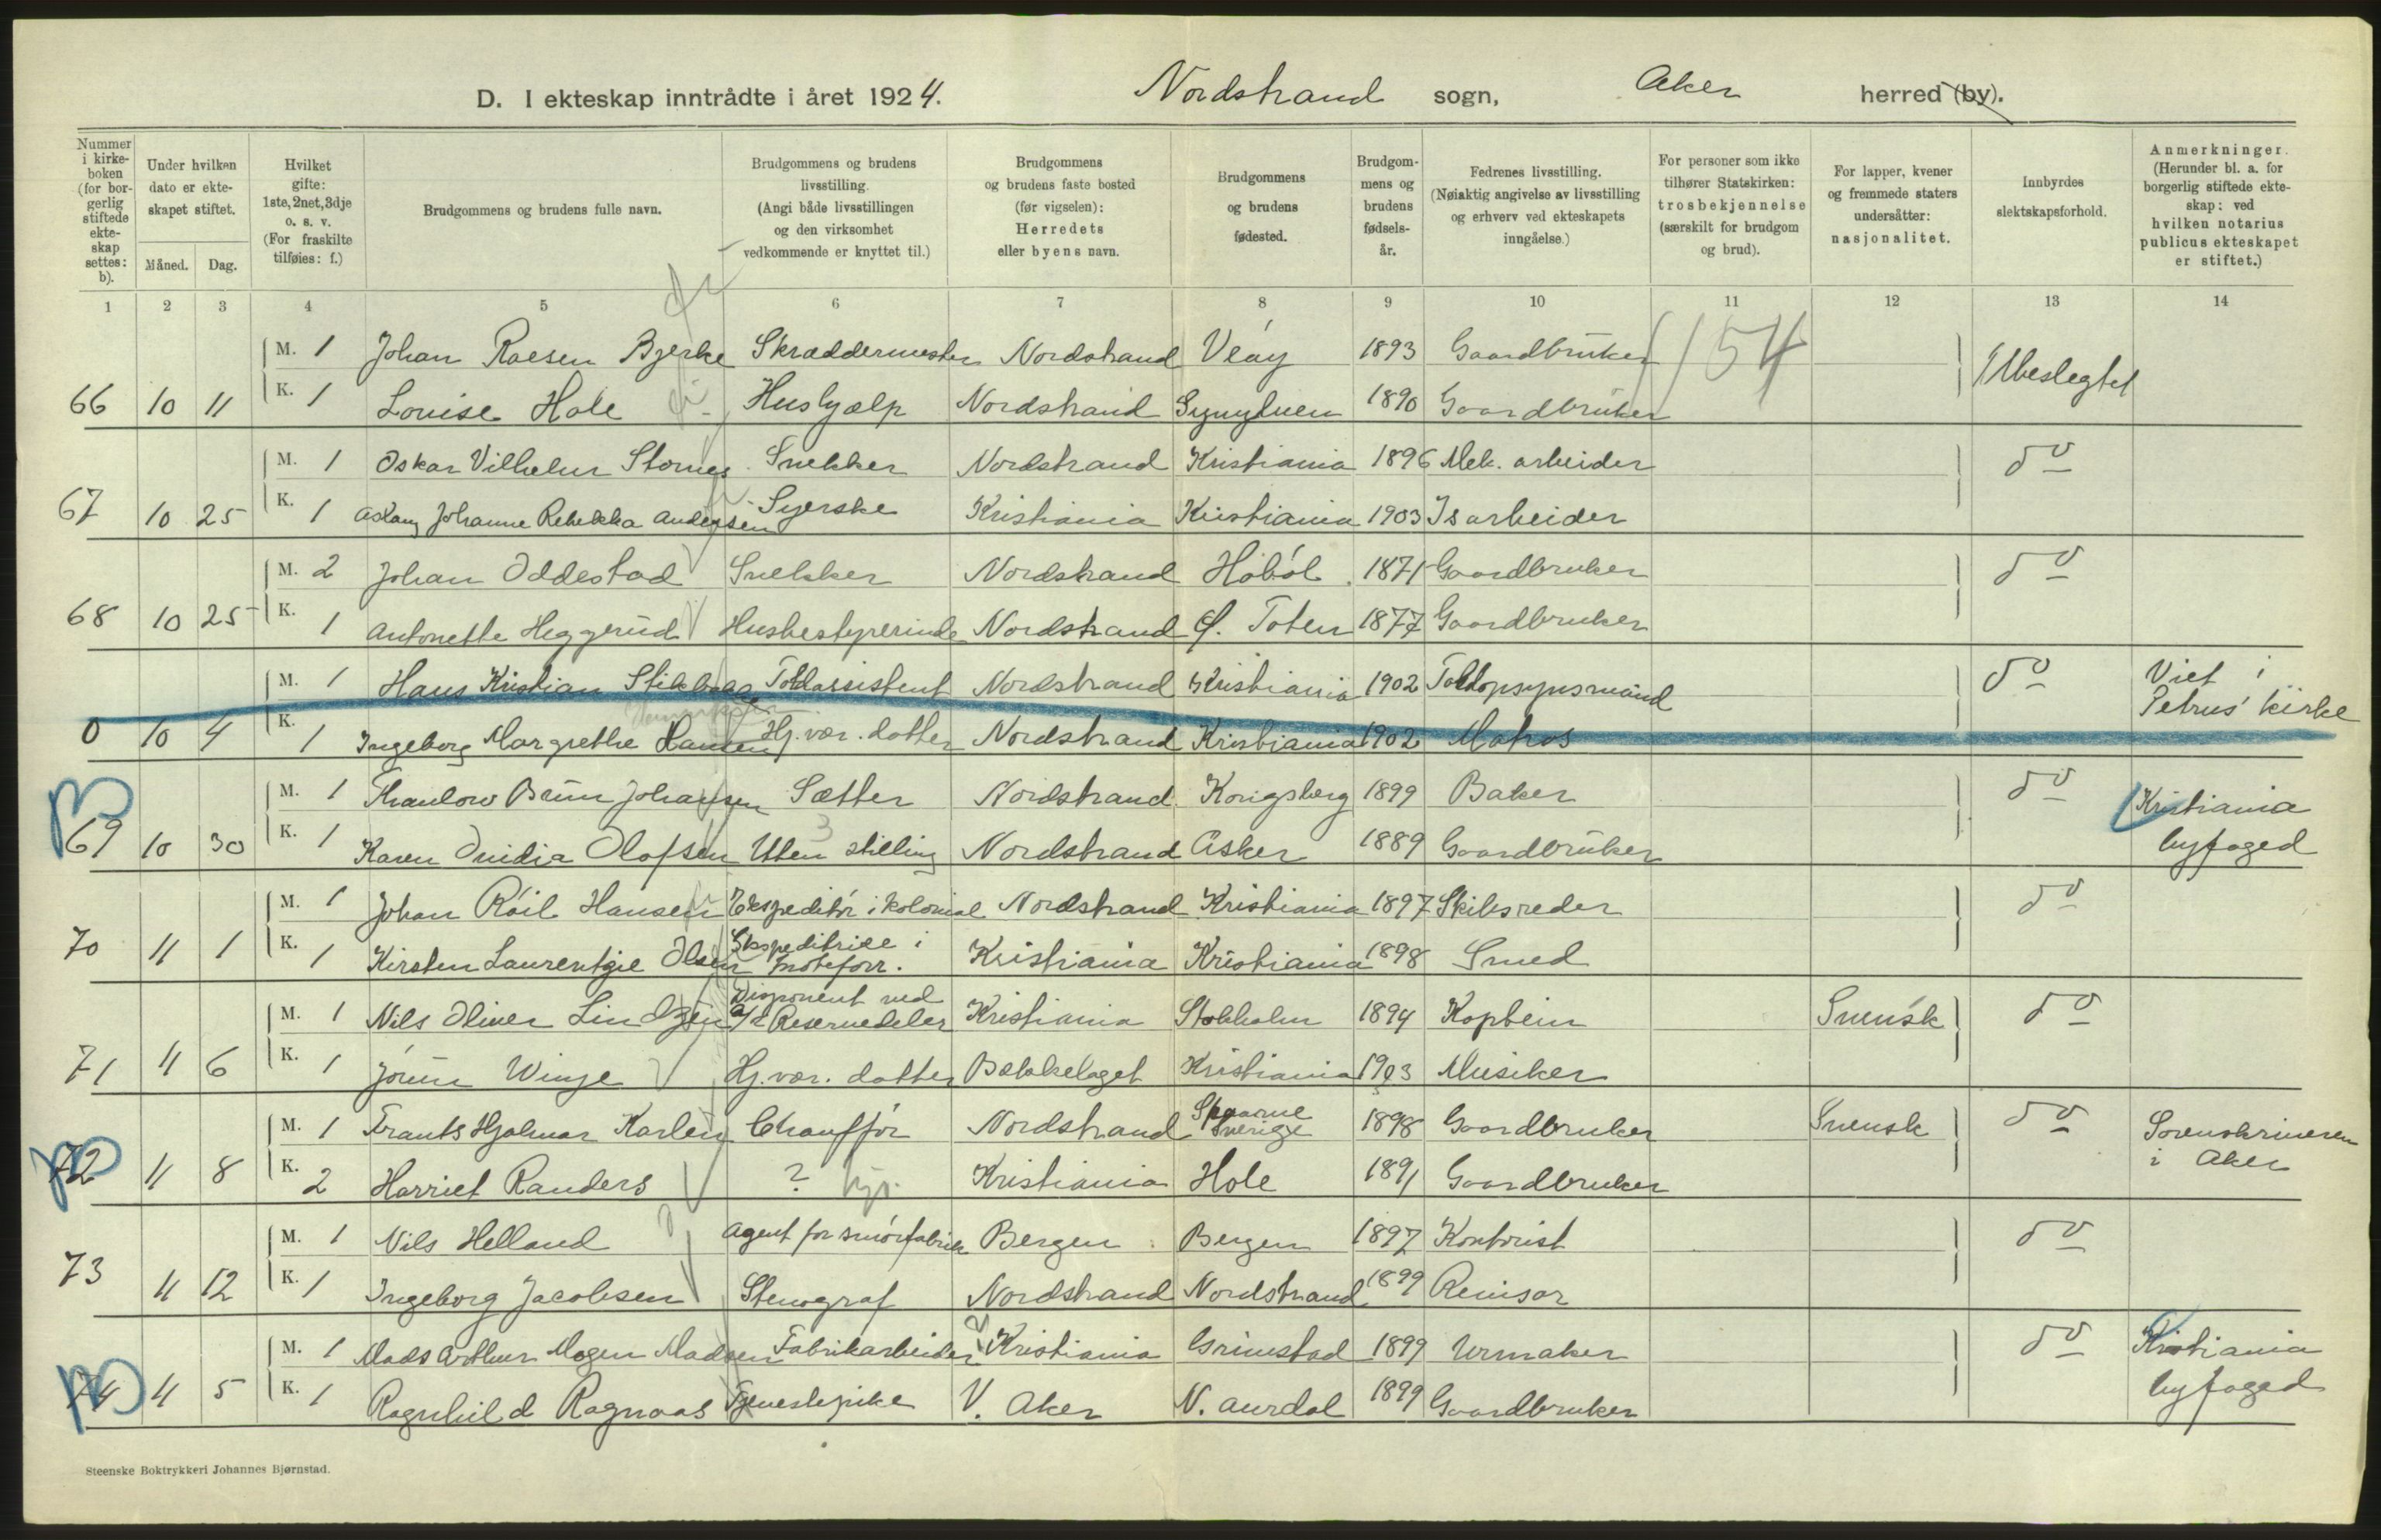 D. I ekteskap inntrådte i året 1924. Nordstrand sogn, Aker herred (by).
Nummer i kirke-boken (for bor-gerlig stiftede ekte-skap settes: b).
Under hvilken dato er ekte-skapet stiftet.
Måned. Dag.
Hvilket gifte: 1ste, 2net, 3dje o. s. v. (For fraskilte tilføies: f.)
Brudgommens og brudens fulle navn.
Brudgommens og brudens livsstilling. (Angi både livsstillingen og den virksomhet vedkommende er knyttet til.)
Brudgommens og brudens faste bosted (før vigselen): Herredets eller byens navn.
Brudgommens og brudens fødested.
Brudgom-mens og brudens fødsels-år.
Fedrenes livsstilling. (Nøiaktig angivelse av livsstilling og erhverv ved ekteskapets inngåelse.)
For personer som ikke tilhører Statskirken: trosbekjennelse (særskilt for brudgom og brud).
For lapper, kvener og fremmede staters undersåtter: nasjonalitet.
Innbyrdes slektskapsforhold.
Anmerkninger. (Herunder bl. a. for borgerlig stiftede ekte-skap: ved hvilken notarius publicus ekteskapet er stiftet.)
1 2 3 4 5 6 7 8 9 10 11 12 13 14
M. 1 Johan Roesen Bjerke Skræddermester Nordstrand Veøy 1893 Gaardbruker 154 Ubeslegtet
66 10 11 K. 1 Louise Hole Hushjælp Nordstrand Synylven 1890 Gaardbruker
M. 1 Oskar Vilhelm Stornes Snekker Nordstrand Kristiania 1896 Mek. arbeider do
67 10 25 K. 1 Aslaug Johanne Rebekka Andersen Syerske Kristiania Kristiania 1903 Isarbeider
M. 2 Johan Oddestad Snekker Nordstrand Hobøl 1871 Gaardbruker do
68 10 25 K. 1 Antonette Heggerud Husbestyrerinde Nordstrand Ø. Toten 1877 Gaardbruker
M. 1 Hans Kristian Toldassistent Nordstrand Kristiania 1902 Toldopsynsmand do Viet i
0 10 4 K. 1 Ingeborg Margrethe Hansen Hj. vær. datter Nordstrand Kristiania 1902 Matros Petrus' kirke
M. 1 Thaulow Brun Johansen Sætter Nordstrand Kongsberg 1899 Baker do Kristiania
69 10 30 K. 1 Karen Ovidia Olofsen Uten stilling 3 Nordstrand Asker 1889 Gaardbruker byfoged
M. 1 Johan Røil Hansen Ekspeditør i kolonial Nordstrand Kristiania 1897 Skibsreder do
70 11 1 K. 1 Kirsten Laurentze Olsen Ekspeditrise i moteforr. Kristiania Kristiania 1898 Smed
M. 1 Nils Oliver Lindgren Disponent ved A/S Reservedeler Kristiania Stokholm 1894 Kaptein Svensk do
71 11 6 K. 1 Jorun Winje Hj. vær. datter Bækkelaget Kristiania 1903 Musiker
M. 1 Frants Hjalmar Karlen Chauffør Nordstrand Skaarne Sverige 1898 Gaardbruker Svensk do Sorenskriveren
72 11 8 K. 2 Harriet Randers ? hjv. Kristiania Hole 1891 Gaardbruker i Aker
M. 1 Nils Helland Agent for smørfabrik Bergen Bergen 1897 Kontorist do
73 11 12 K. 1 Ingeborg Jacobsen Stenograf Nordstrand Nordstrand 1899 Revisor
M. 1 Mads Arthur Mogen Madsen Fabrikarbeider Kristiania Grimstad 1899 Urmaker do Kristiania
74 11 5 K. 1 Ragnhild Ragnaas Tjenestepike V. Aker N. Aurdal 1899 Gaardbruker byfoged
Steenske Boktrykkeri Johannes Bjørnstad.